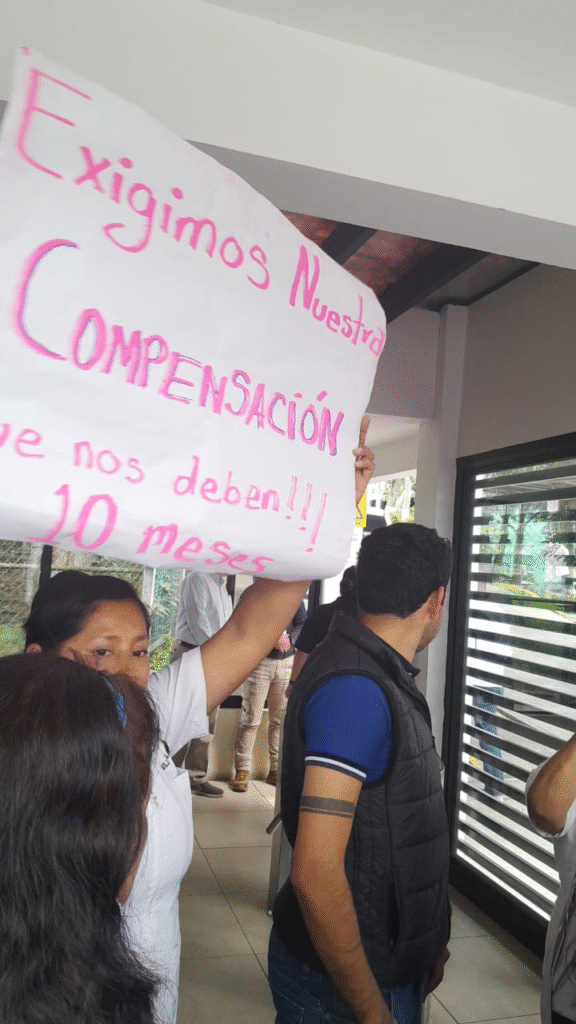 Exigimos Nuestra
COMPENSACIÓN
ue nos deben!!!
10 meses